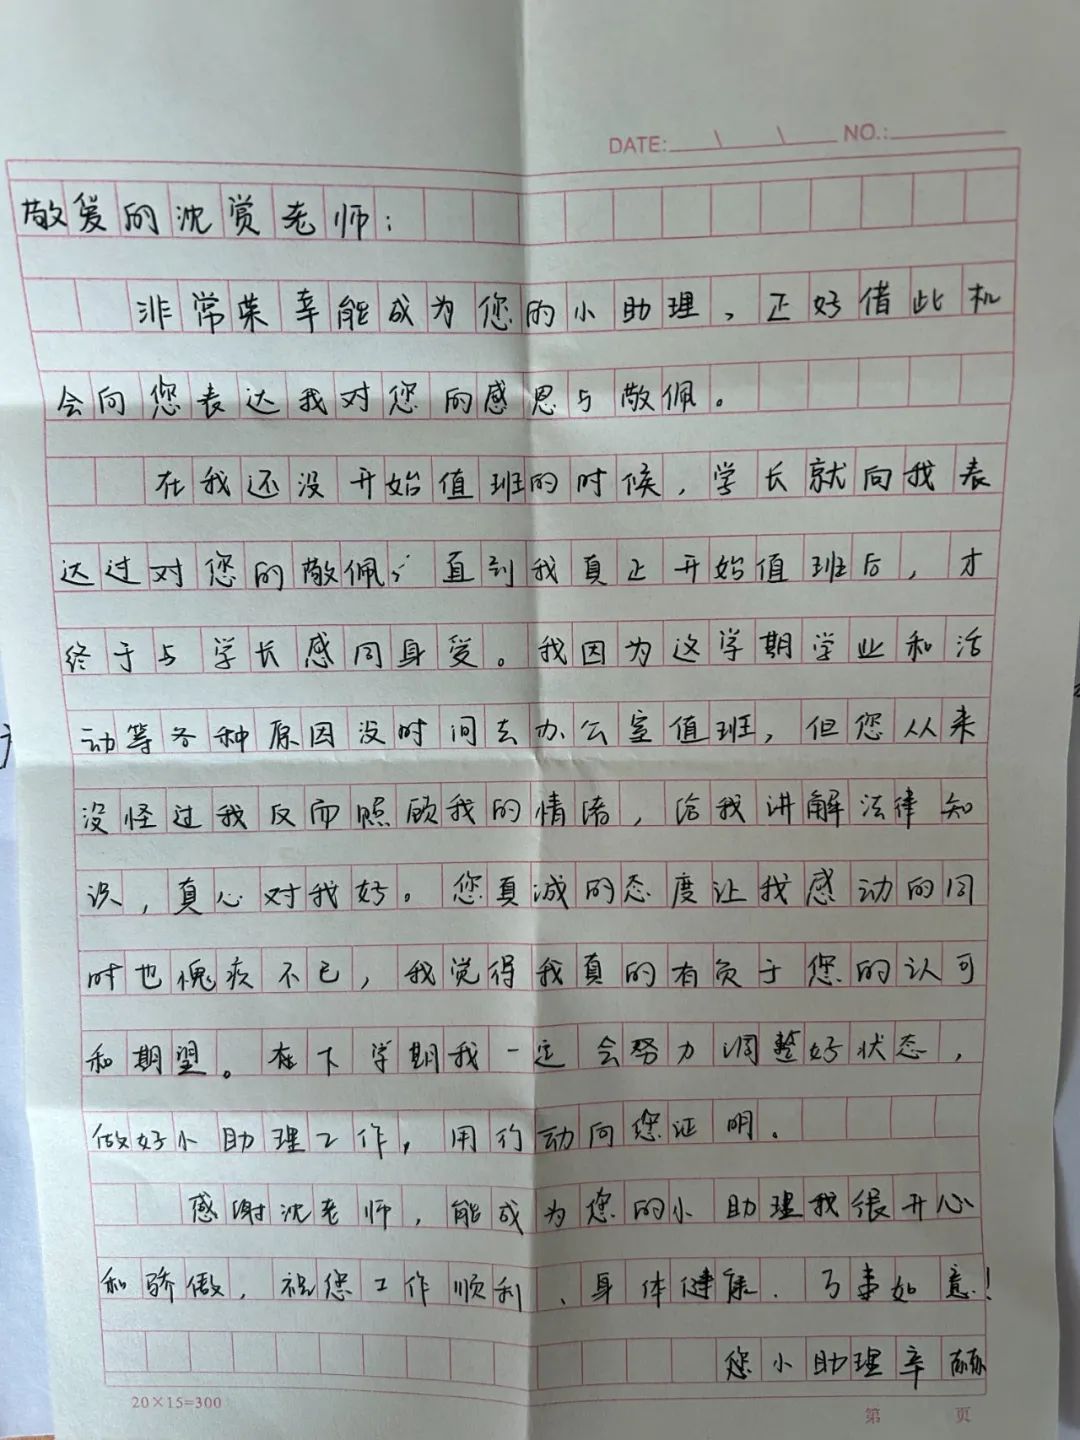 DATE: \ \ NO.:
敬爱的沈赏老师：
非常荣幸能成为您的小助理，正好借此机
会向您表达我对您的感恩与敬佩。
在我还没开始值班的时候，学长就向我表
达过对您的敬佩，直到我真正开始值班后，才
终于与学长感同身受。我因为这学期学业和活
动等各种原因没时间去办公室值班，但您从来
没怪过我反而照顾我的情绪，给我讲解法律知
识，真心对我好。您真诚的态度让我感动的同
时也愧疚不已，我觉得我真的有负于您的认可
和期望。在下学期我一定会努力调整好状态，
做好小助理工作，用行动向您证明。
感谢沈老师，能成为您的小助理我很开心
和骄傲，祝您工作顺利、身体健康、万事如意！
您小助理辛
20×15=300
第 页